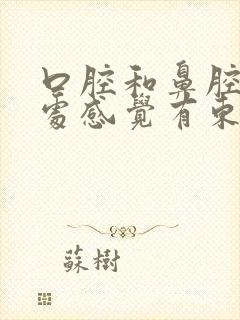 口腔和鼻腔
處感覺有東
蘇樹